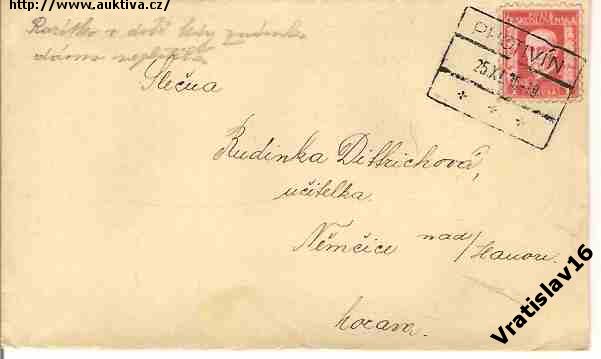 http://www.auktiva.cz/
Razítko z doby kdy známka
dávno neplatila
ČESKOSLOVENSKÁ
PROTIVÍN
25.XI.
Slečna
Rudinka Dittrichová,
učitelka.
Němčice nad/Hanou.
Morava.
Vratislav16